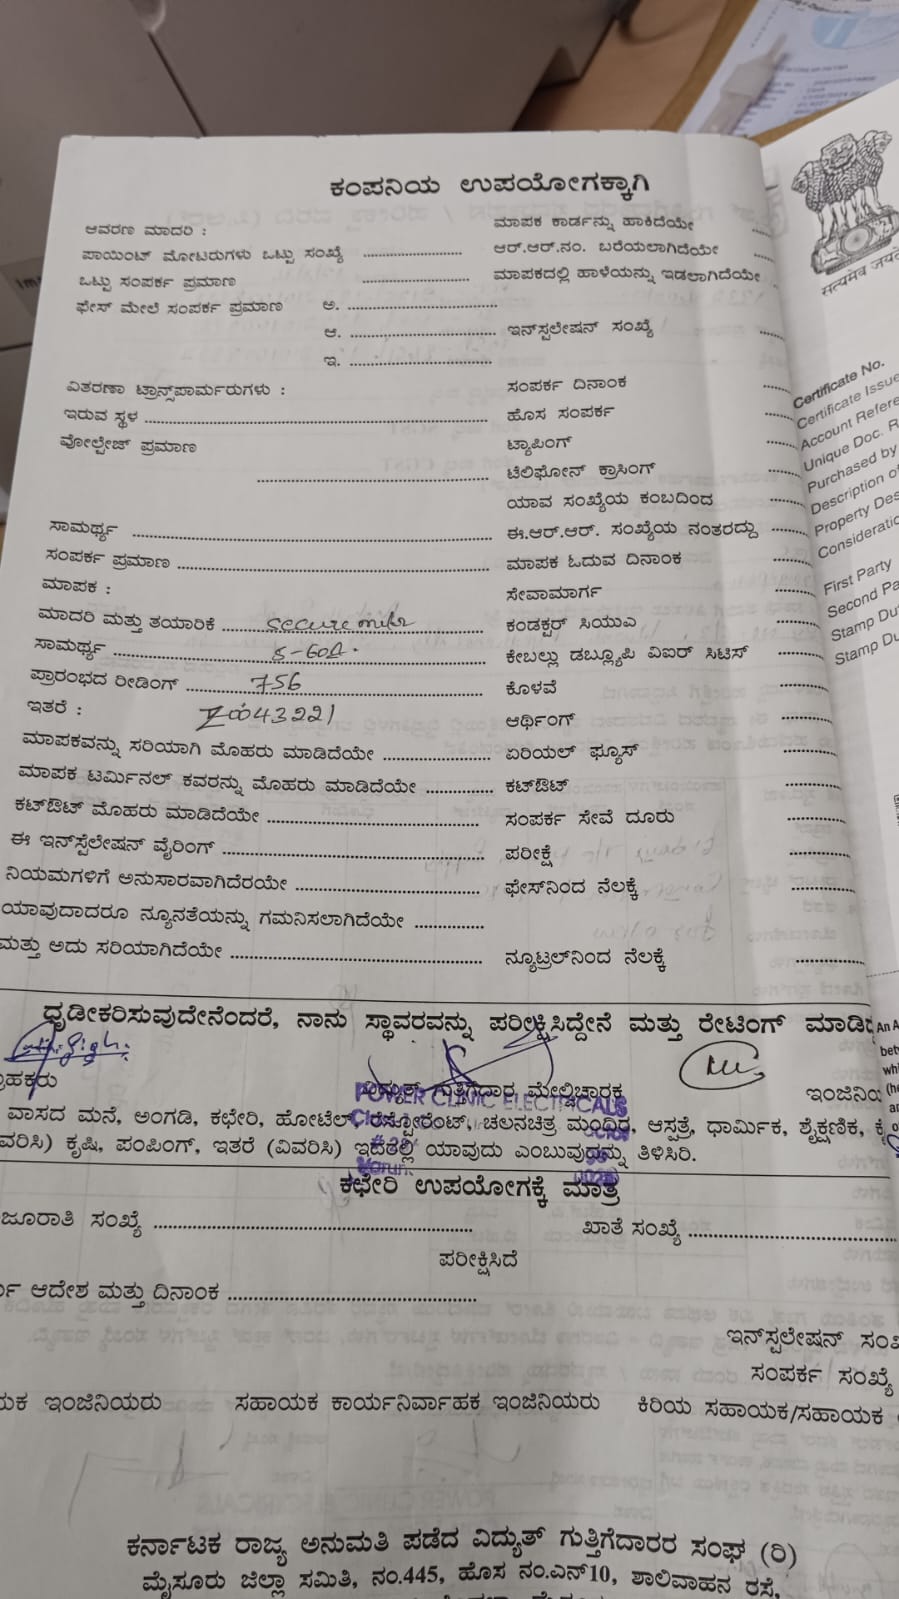 ಕಂಪನಿಯ ಉಪಯೋಗಕ್ಕಾಗಿ
ಆವರಣ ಮಾದರಿ :
ಮಾಪಕ ಕಾರ್ಡನ್ನು ಹಾಕಿದೆಯೇ ......
ಪಾಯಿಂಟ್ ಮೋಟರುಗಳು ಒಟ್ಟು ಸಂಖ್ಯೆ ........................
ಆರ್.ಆರ್.ನಂ. ಬರೆಯಲಾಗಿದೆಯೇ
ಒಟ್ಟು ಸಂಪರ್ಕ ಪ್ರಮಾಣ ........................
ಮಾಪಕದಲ್ಲಿ ಹಾಳೆಯನ್ನು ಇಡಲಾಗಿದೆಯೇ ....
ಫೇಸ್ ಮೇಲೆ ಸಂಪರ್ಕ ಪ್ರಮಾಣ ಅ. ........................
ಆ. ........................ ಇನ್‌ಸ್ಟಲೇಷನ್ ಸಂಖ್ಯೆ ......
ಇ. ........................
ವಿತರಣಾ ಟ್ರಾನ್ಸ್‌ಪಾರ್ಮರುಗಳು :
ಸಂಪರ್ಕ ದಿನಾಂಕ ......
ಇರುವ ಸ್ಥಳ ........................
ಹೊಸ ಸಂಪರ್ಕ ......
ವೋಲ್ಟೇಜ್ ಪ್ರಮಾಣ
ಟ್ಯಾಪಿಂಗ್ ......
........................ ಟೆಲಿಫೋನ್ ಕ್ರಾಸಿಂಗ್ ......
ಯಾವ ಸಂಖ್ಯೆಯ ಕಂಬದಿಂದ ......
ಸಾಮರ್ಥ್ಯ ........................
ಈ.ಆರ್.ಆರ್. ಸಂಖ್ಯೆಯ ನಂತರದ್ದು ......
ಸಂಪರ್ಕ ಪ್ರಮಾಣ ........................
ಮಾಪಕ ಓದುವ ದಿನಾಂಕ ......
ಮಾಪಕ :
ಸೇವಾಮಾರ್ಗ ......
ಮಾದರಿ ಮತ್ತು ತಯಾರಿಕೆ ...... secure ......
ಕಂಡಕ್ಟರ್ ಸಿಯುಎ ......
ಸಾಮರ್ಥ್ಯ ...... 5-60A. ......
ಕೇಬಲ್ಲು ಡಬ್ಲ್ಯೂಪಿ ವಿಐಆರ್ ಸಿಟಿಸ್ ......
ಪ್ರಾರಂಭದ ರೀಡಿಂಗ್ ...... 756 ......
ಕೊಳವೆ ......
ಇತರೆ :
ಆರ್ಥಿಂಗ್ ......
ಮಾಪಕವನ್ನು ಸರಿಯಾಗಿ ಮೊಹರು ಮಾಡಿದೆಯೇ ............
ಏರಿಯಲ್ ಫ್ಯೂಸ್ ......
ಮಾಪಕ ಟರ್ಮಿನಲ್ ಕವರನ್ನು ಮೊಹರು ಮಾಡಿದೆಯೇ ............
ಕಟ್ಔಟ್ ......
ಕಟ್ಔಟ್ ಮೊಹರು ಮಾಡಿದೆಯೇ ........................
ಸಂಪರ್ಕ ಸೇವೆ ದೂರು ......
ಈ ಇನ್‌ಸ್ಟಲೇಷನ್ ವೈರಿಂಗ್ ........................
ಪರೀಕ್ಷೆ ......
ನಿಯಮಗಳಿಗೆ ಅನುಸಾರವಾಗಿದೆರಯೇ ........................
ಫೇಸ್‌ನಿಂದ ನೆಲಕ್ಕೆ ......
ಯಾವುದಾದರೂ ನ್ಯೂನತೆಯನ್ನು ಗಮನಿಸಲಾಗಿದೆಯೇ ............
ಮತ್ತು ಅದು ಸರಿಯಾಗಿದೆಯೇ ........................
ನ್ಯೂಟ್ರಲ್‌ನಿಂದ ನೆಲಕ್ಕೆ ......
ಧೃಡೀಕರಿಸುವುದೇನೆಂದರೆ, ನಾನು ಸ್ಥಾವರವನ್ನು ಪರೀಕ್ಷಿಸಿದ್ದೇನೆ ಮತ್ತು ರೇಟಿಂಗ್
ವಿದ್ಯುತ್ ಗುತ್ತಿಗೆದಾರ ಮೇಲ್ವಿಚಾರಕ
POWER CLINIC ELECTRICALS
ವಾಸದ ಮನೆ, ಅಂಗಡಿ, ಕಛೇರಿ, ಹೋಟೆಲ್, ರೆಸ್ಟೋರೆಂಟ್, ಚಲನಚಿತ್ರ ಮಂದಿರ, ಆಸ್ಪತ್ರೆ, ಧಾರ್ಮಿಕ, ಶೈಕ್ಷಣಿಕ,
ಕೃಷಿ, ಪಂಪಿಂಗ್, ಇತರೆ (ವಿವರಿಸಿ) ಇದರಲ್ಲಿ ಯಾವುದು ಎಂಬುವುದನ್ನು ತಿಳಿಸಿರಿ.
ಕಛೇರಿ ಉಪಯೋಗಕ್ಕೆ ಮಾತ್ರ
ಜೂರಾತಿ ಸಂಖ್ಯೆ ........................ ಖಾತೆ ಸಂಖ್ಯೆ ........................
ಪರೀಕ್ಷಿಸಿದೆ
ಆದೇಶ ಮತ್ತು ದಿನಾಂಕ ........................
ಇನ್‌ಸ್ಟಲೇಷನ್
ಸಂಪರ್ಕ ಸಂಖ್ಯೆ
ಯಕ ಇಂಜಿನಿಯರು ಸಹಾಯಕ ಕಾರ್ಯನಿರ್ವಾಹಕ ಇಂಜಿನಿಯರು ಕಿರಿಯ ಸಹಾಯಕ/ಸಹಾಯಕ
ಕರ್ನಾಟಕ ರಾಜ್ಯ ಅನುಮತಿ ಪಡೆದ ವಿದ್ಯುತ್ ಗುತ್ತಿಗೆದಾರರ ಸಂಘ (ರಿ)
ಮೈಸೂರು ಜಿಲ್ಲಾ ಸಮಿತಿ, ನಂ.445, ಹೊಸ ನಂ.ಎನ್10, ಶಾಲಿವಾಹನ ರಸ್ತೆ,
सत्यमेव जयते
Certificate No.
Certificate Issue
Account Refere
Unique Doc. R
Purchased by
Description of
Property Des
Consideratio
First Party
Second Pa
Stamp Du
Stamp Du